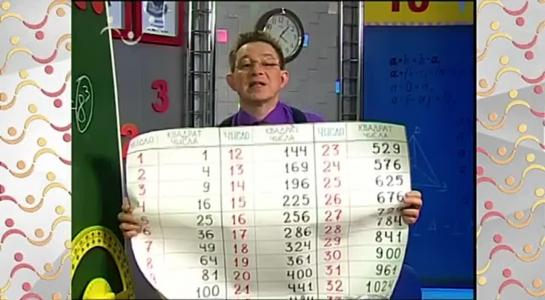 ЧИСЛО КВАДРАТ ЧИСЛА ЧИСЛО КВАДРАТ ЧИСЛА ЧИСЛО КВАДРАТ ЧИСЛА
1 1 12 144 23 529
2 4 13 169 24 576
3 9 14 196 25 625
4 16 15 225 26 676
5 25 16 256 27
6 36 17 286 28 784
7 49 18 324 29 841
8 64 19 361 30 900
9 81 20 400 31 961
100 21 441 32 1024
3
a+b=b+a